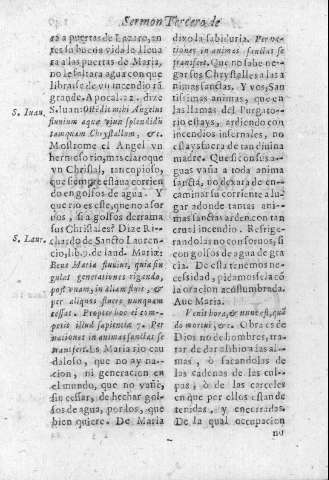 Sermon Tercero de
tá a puertas de Lazaro, en-
tre su buena vida le lleua-
ra a las puertas de Maria,
no le faltara agua con que
librarse de vn incendio tā
grande. Apocal. 22. dize
S. Iuan.
S. Iuan: Ostēdit mihi Angelus
fluuium aquæ viuæ splendidū
tamquam Chrystallum, &c.
Mostrome el Angel vn
hermoso rio, mas claro que
vn Christal, tan copioso,
que siempre estaua corrien
do en golfos de agua. Y
que rio es este, que no a for
vos, si a golfos derrama
sus Christales? Dize Ri-
S. Laur.
chardo de Sancto Lauren-
cio, lib. 9. de laud. Mariæ:
Beus Maria fluuius, quia sin
gulas generationes riganda,
post vnam, in aliam fluit, &
per aliquos fluere nunquam
cessat. Propter hoc ei com-
petit illud sapientiæ 7. Per
nationes in animas sanctas se
transfert. Es Maria rio cau
daloso, que no ay na-
cion, ni generacion en
el mundo, que no vañe,
sin cessar, de hechar gol-
fos de agua, por los, que
bien quiere. De Maria
dixo la sabiduria. Per na-
tiones in animas sanctas se
transfert. Que no sabe ne-
gar sos Chrystalles a las a
nimas sanctas. Y vos, San
tissimas animas, que en
las llamas del Purgato-
rio estays, ardiendo con
incendios infernales, no
estays fuera de tan diuina
madre. Que si con sus a-
guas vaña a toda anima
sancta, no dexara de en-
caminar su corriente a lu-
gar adonde tantas ani-
mas sanctas arden con tan
crual incendio. Refrige-
randolas no con fornos, si
con golfos de agua de gra
cia. De esta tenemos ne-
cessidad, pidamosela cō
la oracion acostumbrada.
Aue Maria.
Venit hora, & nunc est, quā
do mortui, &c. Obra es de
Dios no de hombres, tra-
tar de dar aliuio a las al-
mas, ò sacandolas de
las cadenas de las cul-
pas, ò de las carceles
en que por ellos estan de
tenidas, y encerradas.
De la qual ocupacion
no